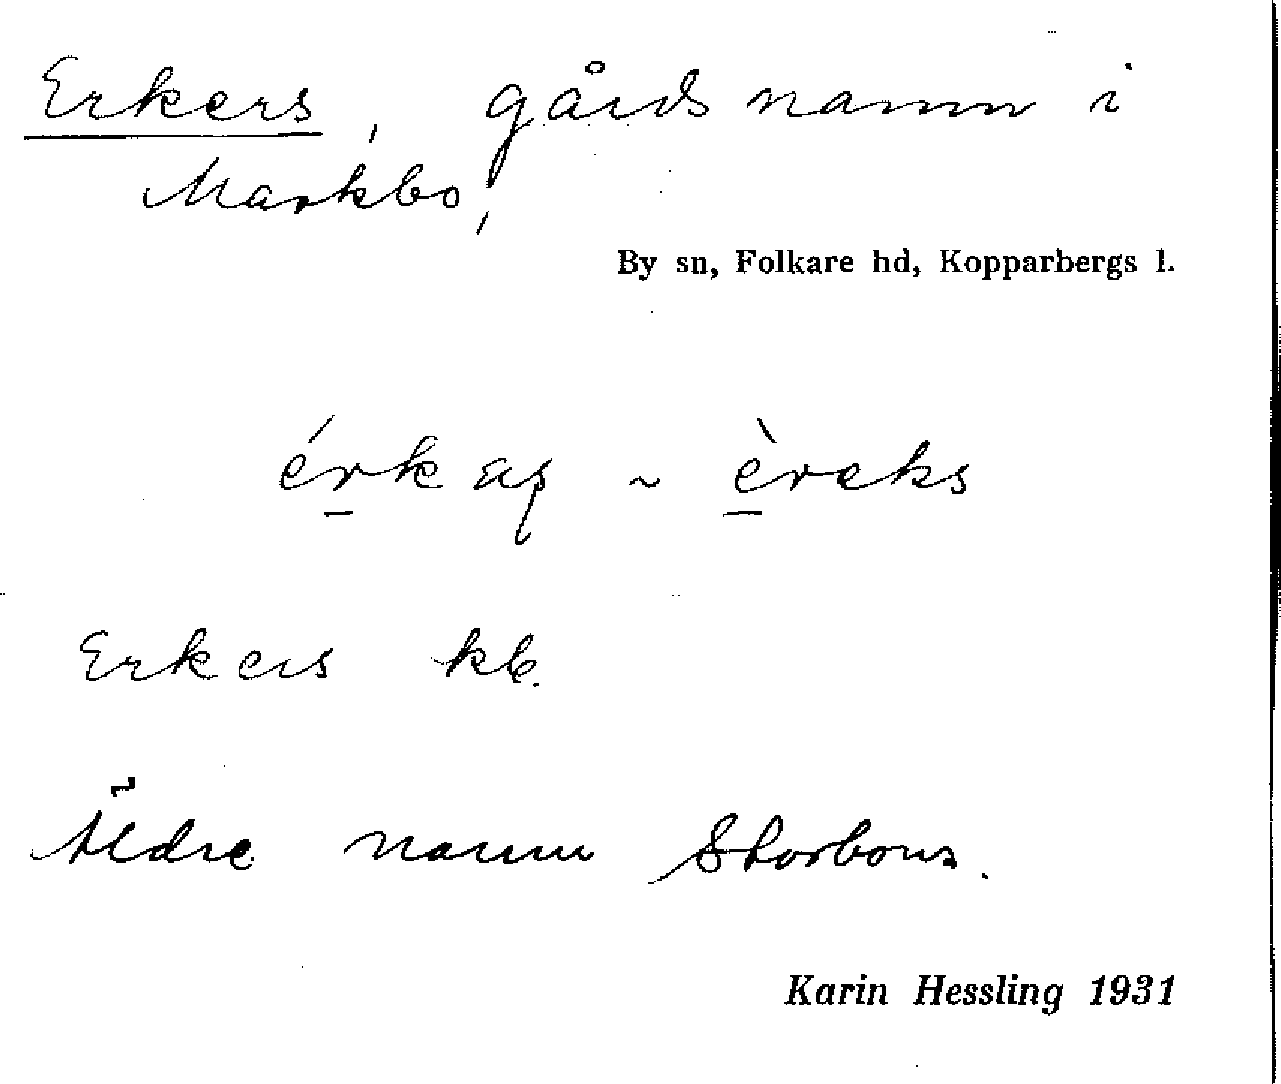 Erkers, gårdsnamn i
Markbo,
By sn, Folkare hd, Kopparbergs l.
~ èreks
Erkers kb.
Äldre namn Storbons.
Karin Hessling 1931